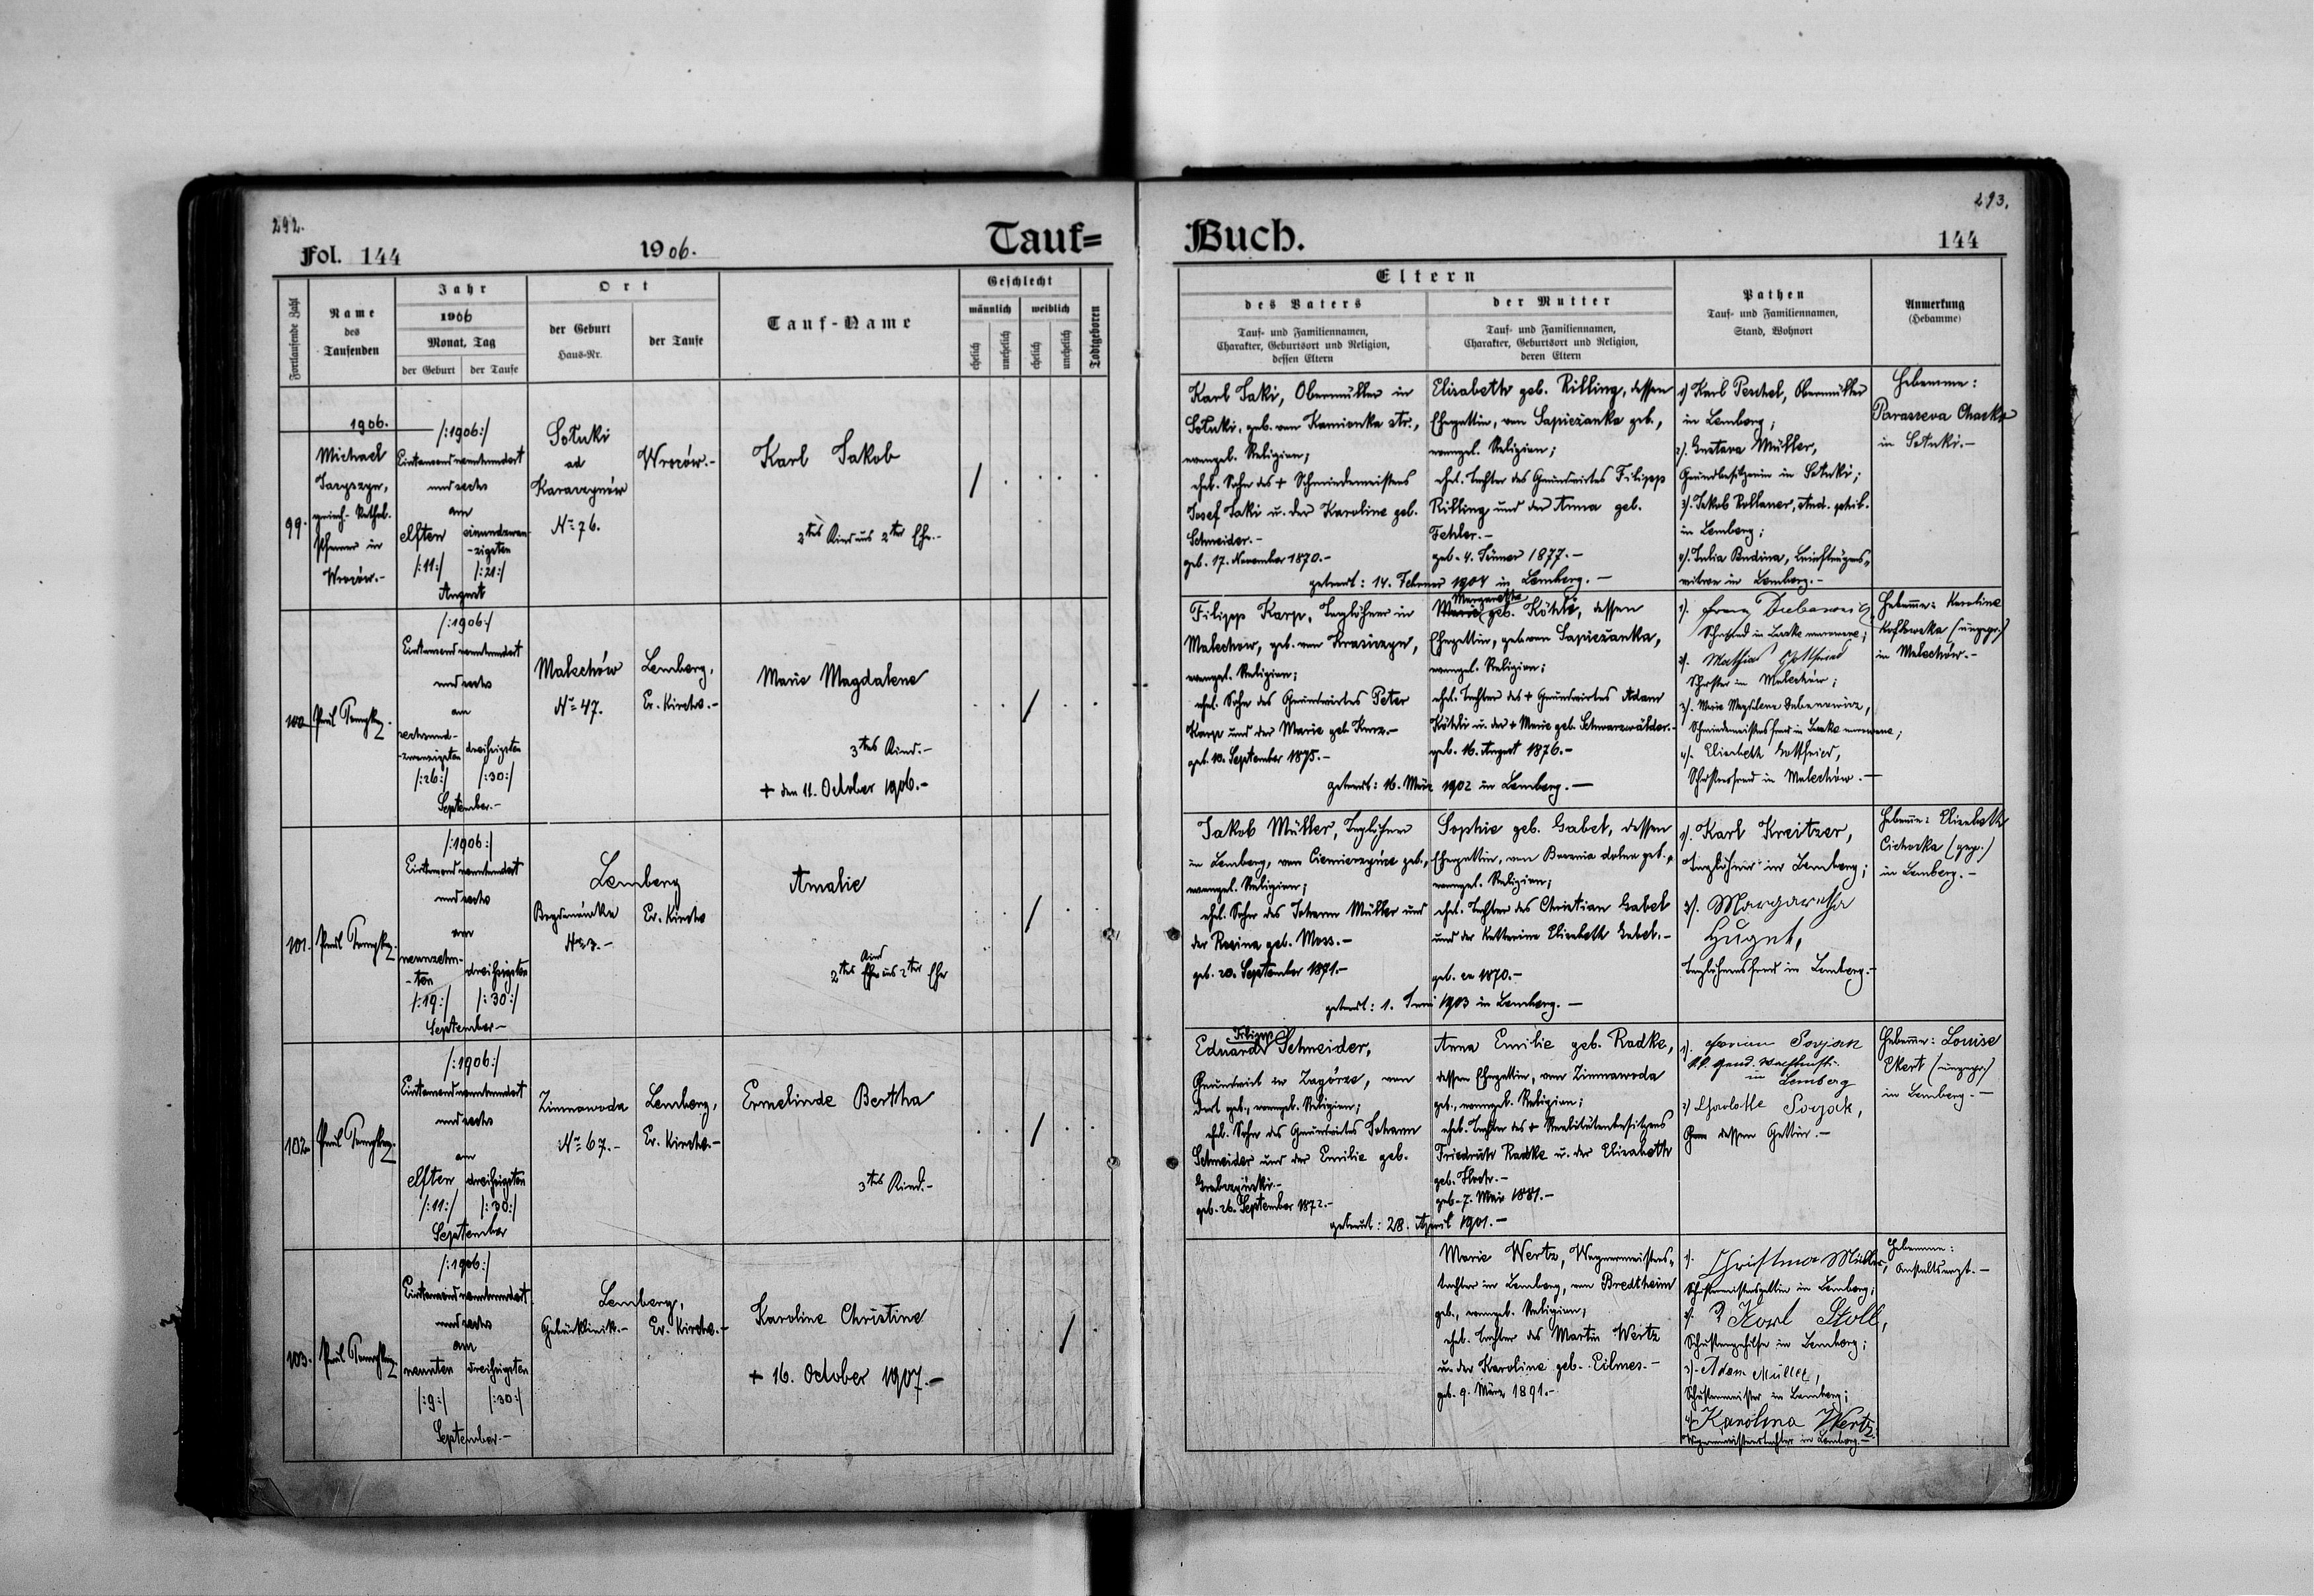 292.
Fol. 144
1906.
Tauf=
Fortlaufende Zahl
Name
des
Taufenden
Jahr
1906
Monat, Tag
der Geburt
der Taufe
Ort
der Geburt
Haus-Nr.
der Taufe
Tauf-Name
Geschlecht
männlich
weiblich
ehelich
unehelich
ehelich
unehelich
Todtgeboren
99.
1906.
Michael
Pfarrer in
/:1906:/
Eintausendneunhundert
und sechs
am
elften
/:11:/
einundzwan-
-zigsten
/:21:/
August
Sołuki
ad
No 76.
Karl Jakob
2tes Kind aus 2ter Ehe.-
/
100.
Paul
/:1906:/
Eintausendneunhundert
und sechs
am
sechsund-
-zwanzigsten
/:26:/
dreißigsten
/:30:/
September.-
Malechów
No 47.
Lemberg,
Ev. Kirche.-
Marie Magdalene
3tes Kind.-
+ den 11. October 1906.-
/
101.
Paul
/:1906:/
Eintausendneunhundert
und sechs
am
neunzehn-
-ten
/:19:/
dreißigsten
/:30:/
September.-
Lemberg
No 3.-
Ev. Kirche
Amalie
Kind
2tes Ehe aus 2ter Ehe
/
102.
Paul
/:1906:/
Eintausendneunhundert
und sechs
am
elften
/:11:/
dreißigsten
/:30:/
September
Zimnawoda
No 67.-
Lemberg,
Ev. Kirche.-
Ermelinde Bertha
3tes Kind.-
/
103.
Paul
/:1906:/
Eintausendneunhundert
und sechs
am
neunten
/:9:/
dreißigsten
/:30:/
September.-
Lemberg,
Gebärklinik.-
Ev. Kirche.-
Karoline Christine
+ 16. October 1907.-
/
293.
Buch.
144
Eltern
des Vaters
Tauf- und Familiennamen,
Charakter, Geburtsort und Religion,
dessen Eltern
der Mutter
Tauf- und Familiennamen,
Charakter, Geburtsort und Religion,
deren Eltern
Pathen
Tauf- und Familiennamen,
Stand, Wohnort
Anmerkung
(Hebamme)
Karl Jaki, Obermüller in
Sołuki, geb. von Kamionka str.,
evangel. Religion;
ehel. Sohn des + Schmiedemeisters
Josef Jaki u. der Karoline geb.
Schneider.-
geb. 17. November 1870.-
Elisabeth geb. Rilling, dessen
Ehegattin, von Sapieżanka geb.,
evangel. Religion;
ehel. Tochter des Grundwirtes Filipp
Rilling und der Anna geb.
Fehler.-
geb. 4. Jänner 1877.-
getraut: 14. Februar 1904 in Lemberg.-
1) Karl Peschel, Obermüller
in Lemberg;
2). Gustava Müller,
Grundbesitzerin in Sołuki;
3). Jakob
in Lemberg;
4). Julia Budina,
witwe in Lemberg.-
Hebamme:
Parasseva
in Sołuki.-
Filipp Karp, Taglöhner in
Malechow, geb. von
evangel. Religion;
ehel. Sohn des Grundwirtes Peter
Karp und der Marie geb. Kurz.-
geb. 10. September 1875.-
Margaretha
Marie geb. Köhli, dessen
Ehegattin, geb. von Sapieżanka,
evangel. Religion;
ehel. Tochter des + Grundwirtes Adam
Köhli u. der + Marie geb. Schwarzwälder.-
geb. 16. August 1876.-
getraut: 16. März 1902 in Lemberg.-
1). Franz
2). Mathias Gottfried
Schuster in Malechów;
3). Marie Magdalena
4). Elisabeth
in Malechów.-
Hebamme: Karoline
in Malechów.-
Jakob Müller, Taglöhner
in Lemberg, von geb.,
evangel. Religion;
ehel. Sohn des Johann Müller und
der Rosina geb. Moss.-
geb. 20. September 1871.-
Sophie geb. Gabel, dessen
Ehegattin, von dolna geb.,
evangel. Religion;
ehel. Tochter des Christian Gabel
und der Katharina Elisabeth Gabel.-
geb. ca 1870.-
getraut: 1. Juni 1903 in Lemberg.-
1). Karl Kreitzer,
Taglöhner in Lemberg;
2). Margaretha
Huget,
Taglöhnersfrau in Lemberg.-
Hebamme: Elisabeth
Cichocka (gepr.)
in Lemberg.-
Filipp
Eduard Schneider,
Grundwirt in Zagórze, von
dort geb., evangel. Religion;
ehel. Sohn des Grundwirtes Johann
Schneider und der Emilie geb.
geb. 26. September 1872.-
Anna Emilie geb. Radke,
dessen Ehegattin, von Zimnawoda
geb., evangel. Religion;
ehel. Tochter des + Realitätenbesitzers
Friedrich Radke u. der Elisabeth
geb.
geb. 7. Mai 1881.-
getraut: 28. April 1901.-
1).
in Lemberg
2)
dessen Gattin.-
Hebamme: Louise
Ekert (ungepr.)
in Lemberg.-
Marie Wertz, Wagnermeisters-
tochter in Lemberg, von Bredtheim
geb., evangel. Religion;
ehel. Tochter des Martin Wertz
u. der Karoline geb. Eilmes.-
geb. 9. März 1891.-
1). Christina Müller,
Schustermeistersgattin in Lemberg;
2). Karl Stoll,
Schustergehilfe in Lemberg;
3). Adam Müller,
Schustermeister in Lemberg;
4). Karolina Wertz
Wagnermeisterstochter in Lemberg.-
Hebamme:
Anstaltsarzt.-